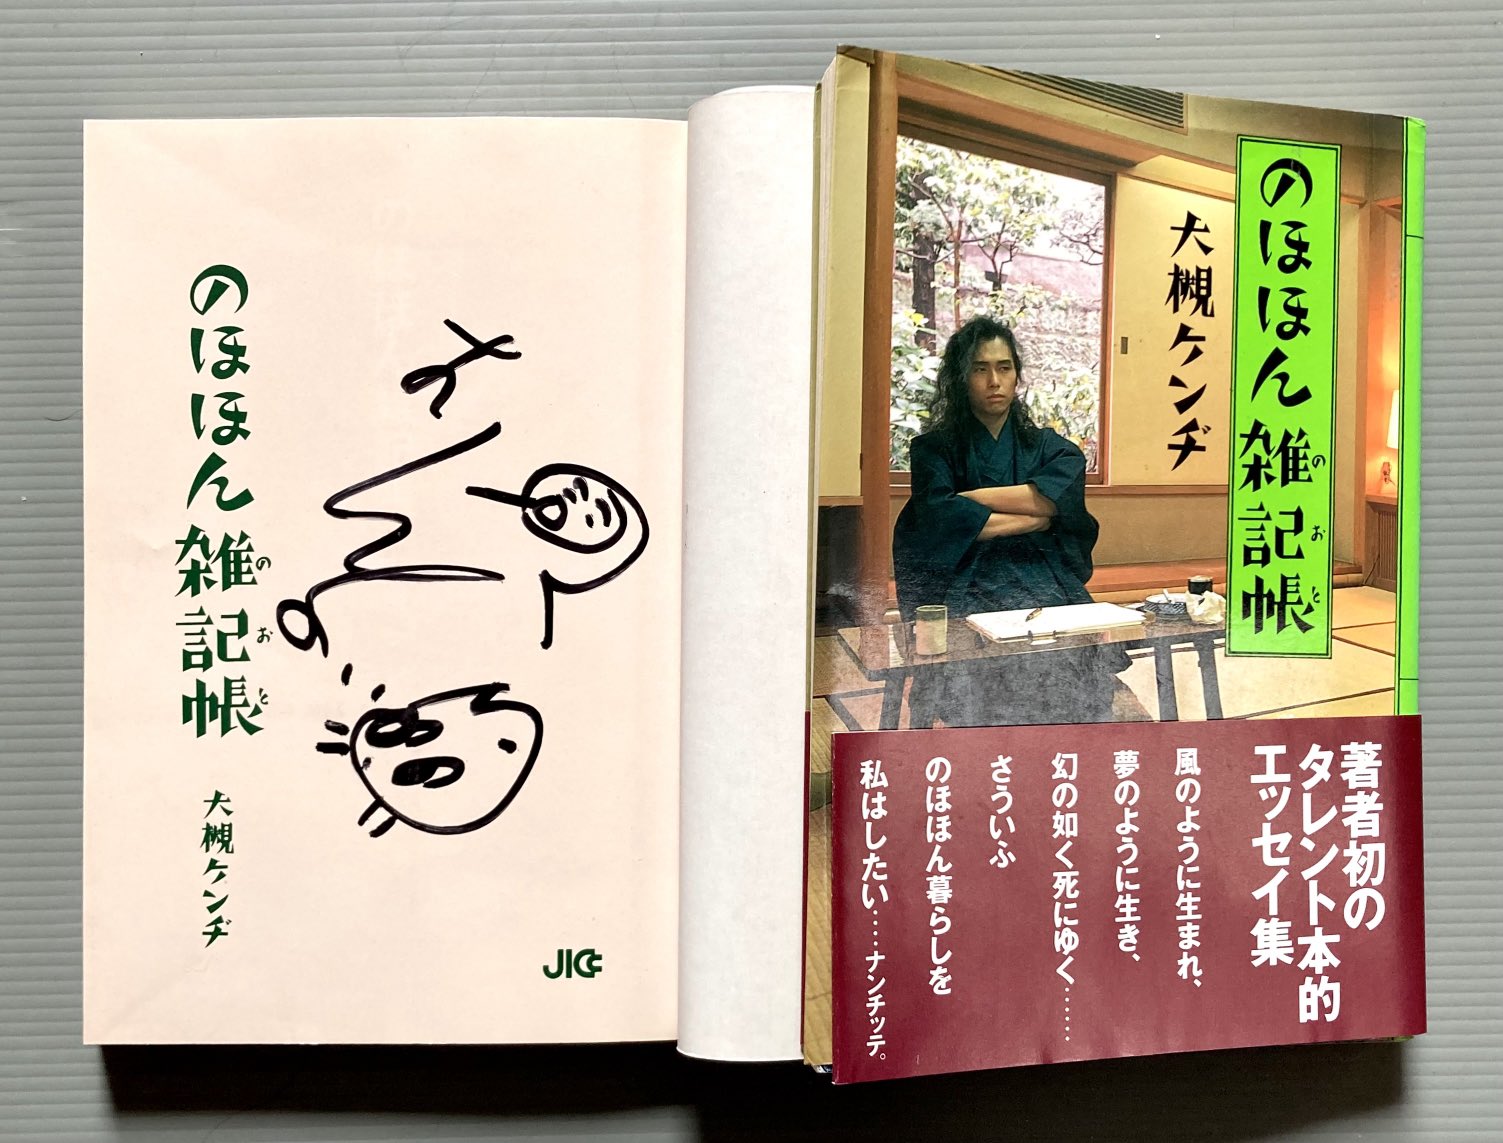 のほほん雑記帳
のおと
大槻ケンヂ
JICC
のほほん雑記帳
のおと
大槻ケンヂ
著者初の
タレント本的
エッセイ集
風のように生まれ、
夢のように生き、
幻の如く死にゆく……
さういふ
のほほん暮らしを
私はしたい……ナンチッテ。